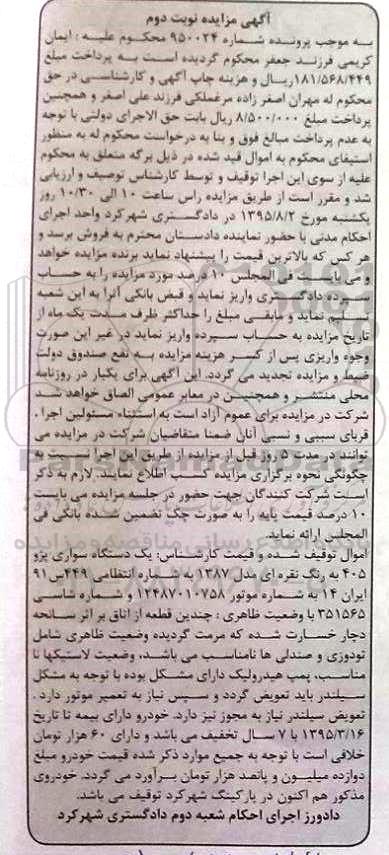 آگهی مزایده نوبت دوم
به موجب پرونده شماره ۹۵۰۰۲۴ محکوم علیه : ایمان
کریمی فرزند جعفر محکوم گردیده است به پرداخت مبلغ
۱۸۱/۵۶۸/۴۴۹ریال و هزینه چاپ آگهی و کارشناسی در حق
محکوم له مهران اصغر زاده مرغملکی فرزند علی اصغر و همچنین
پرداخت مبلغ ۸/۵۰۰/۰۰۰ ریال بابت حق الاجرای دولتی با توجه
به عدم پرداخت مبالغ فوق و بنا به درخواست محکوم له به منظور
استیفای محکوم به اموال قید شده در ذیل برگه متعلق به محکوم
علیه از سوی این اجرا توقیف و توسط کارشناس توصیف و ارزیابی
شد و مقرر است از طریق مزایده راس ساعت ۱۰ الی ۱۰/۳۰ روز
یکشنبه مورخ ۱۳۹۵/۸/۲ در دادگستری شهرکرد واحد اجرای
احکام مدنی با حضور نماینده دادستان محترم به فروش برسد و
هر کس که بالاترین قیمت را پیشنهاد نماید برنده مزایده خواهد
و می بایست فی المجلس ۱۰درصد مورد مزایده را به حساب
سپرده دادگستری واریز نماید و قبض بانکی آنرا به این شعبه
تسلیم نماید و مابقی مبلغ را حداکثر ظرف مدت یک ماه از
تاریخ مزایده به حساب سپرده واریز نماید در غیر این صورت
وجوه واریزی پس از کسر هزینه مزایده به نفع صندوق دولت
ضبط و مزایده تجدید می گردد. این آگهی برای یکبار در روزنامه
محلی منتشر و همچنین در معابر عمومی الصاق خواهد شد
شرکت در مزایده برای عموم آزاد است به استثناء مسئولین اجرا ،
قربای سببی و نسبی آنان ضمنا متقاضیان شرکت در مزایده می
توانند در مدت ۵ روز قبل از مزایده از طریق این اجرا نسبت به
چگونگی نحوه برگزاری مزایده کسب اطلاع نمایند. لازم به ذکر
است شرکت کنندگان جهت حضور در جلسه مزایده می بایست
۱۰ درصد قیمت پایه را به صورت چک تضمین شده بانکی فی
المجلس ارائه نماید.
اموال توقیف شده و قیمت کارشناس: یک دستگاه سواری پژو
۴۰۵ به رنگ نقره ای مدل ۱۳۸۷ به شماره انتظامی ۴۴۹س۹۱
ایران ۱۴ به شماره موتور ۱۲۴۸۷۰۱۰۷۵۸ و شماره شاسی
۳۵۱۵۶۵ با وضعیت ظاهری : چندین قطعه از اتاق بر اثر سانحه
دچار خسارت شده که مرمت گردیده وضعیت ظاهری شامل
تودوزی و صندلی ها نامناسب می باشد، وضعیت لاستیکها نا
مناسب، پمپ هیدرولیک دارای مشکل بوده با توجه به مشکل
سیلندر باید تعویض گردد و سپس نیاز به تعمیر موتور دارد .
تعویض سیلندر نیاز به مجوز نیز دارد. خودرو دارای بیمه تا تاریخ
۱۳۹۵/۳/۱۶ با ۷ سال تخفیف می باشد و دارای ۶۰ هزار تومان
خلافی است با توجه به جمیع موارد ذکر شده قیمت خودرو مبلغ
دوازده میلیون و پانصد هزار تومان برآورد می گردد. خودروی
مذکور هم اکنون در پارکینگ شهرکرد توقیف می باشد.
دادورز اجرای احکام شعبه دوم دادگستری شهرکرد